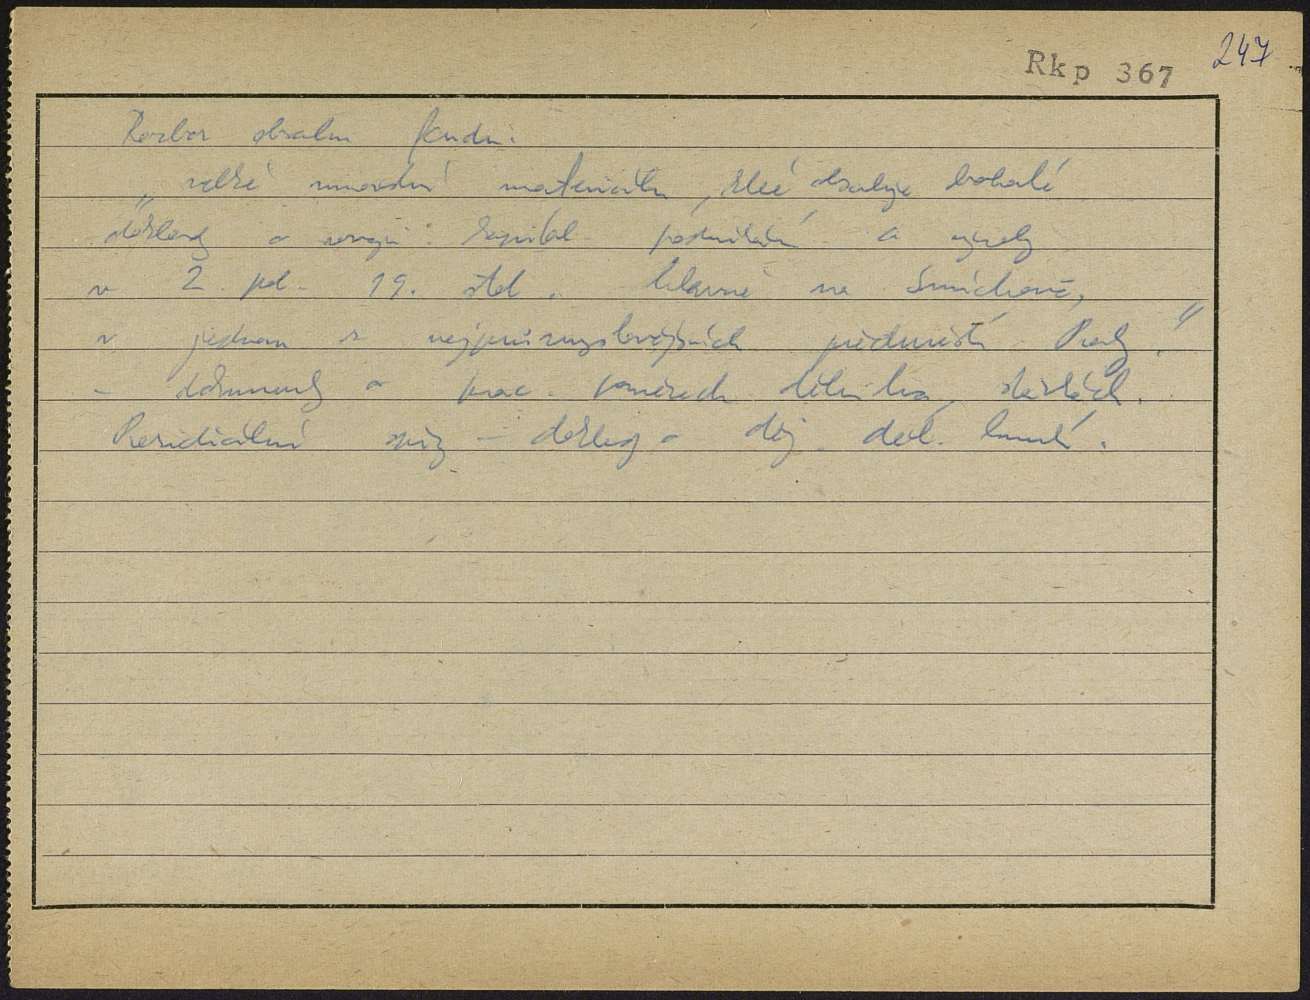 247
Rkp 367
Rozbor obsahu fondu:
„velké množství materiálu, které obsahuje bohaté
doklady o vývoji kapital. podnikání a výroby
v 2. pol. 19. stol. hlavně na Smíchově,
v jednom z nejprůmyslovějších předměstí Prahy."
– dokumenty o prac. poměrech dělnictva, stávkách.
Presidiální spisy – doklady o děj. děl. hnutí.